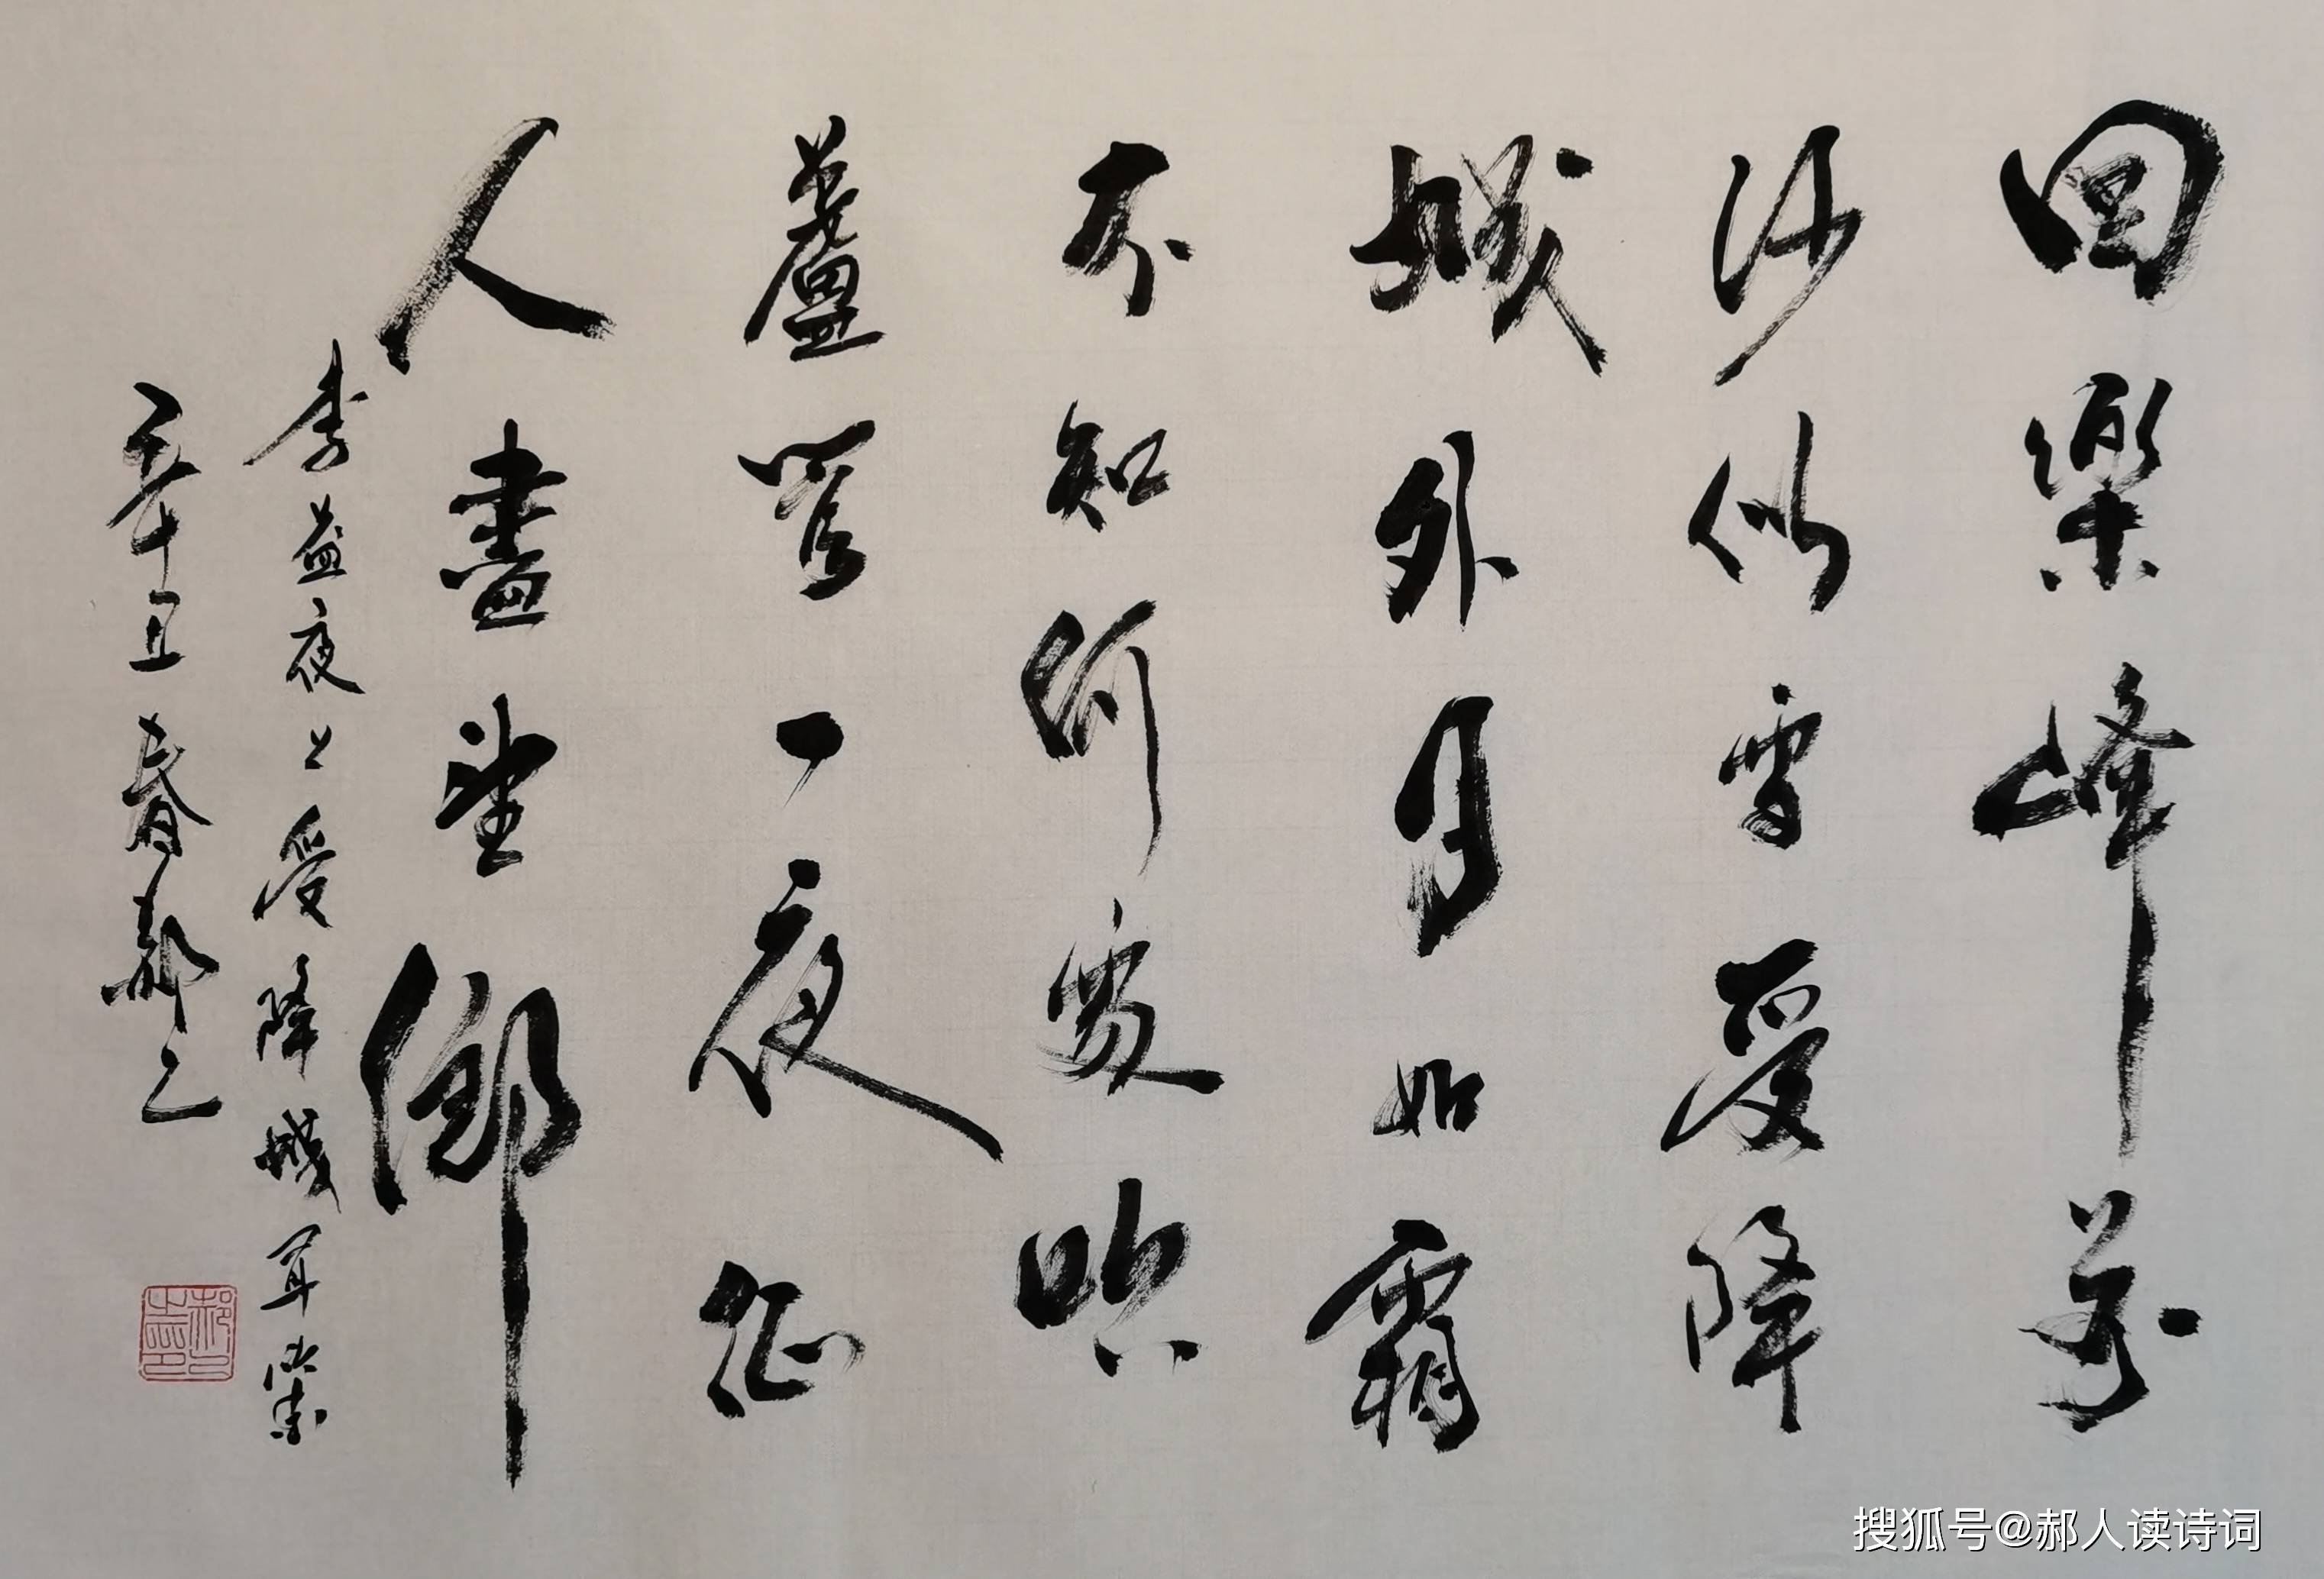 回樂峰前
沙似雪受降
城外月如霜
不知何處吹
蘆管一夜征
人盡望鄉
李益夜上受降城聞
辛丑春郝
搜狐号@郝人读诗词